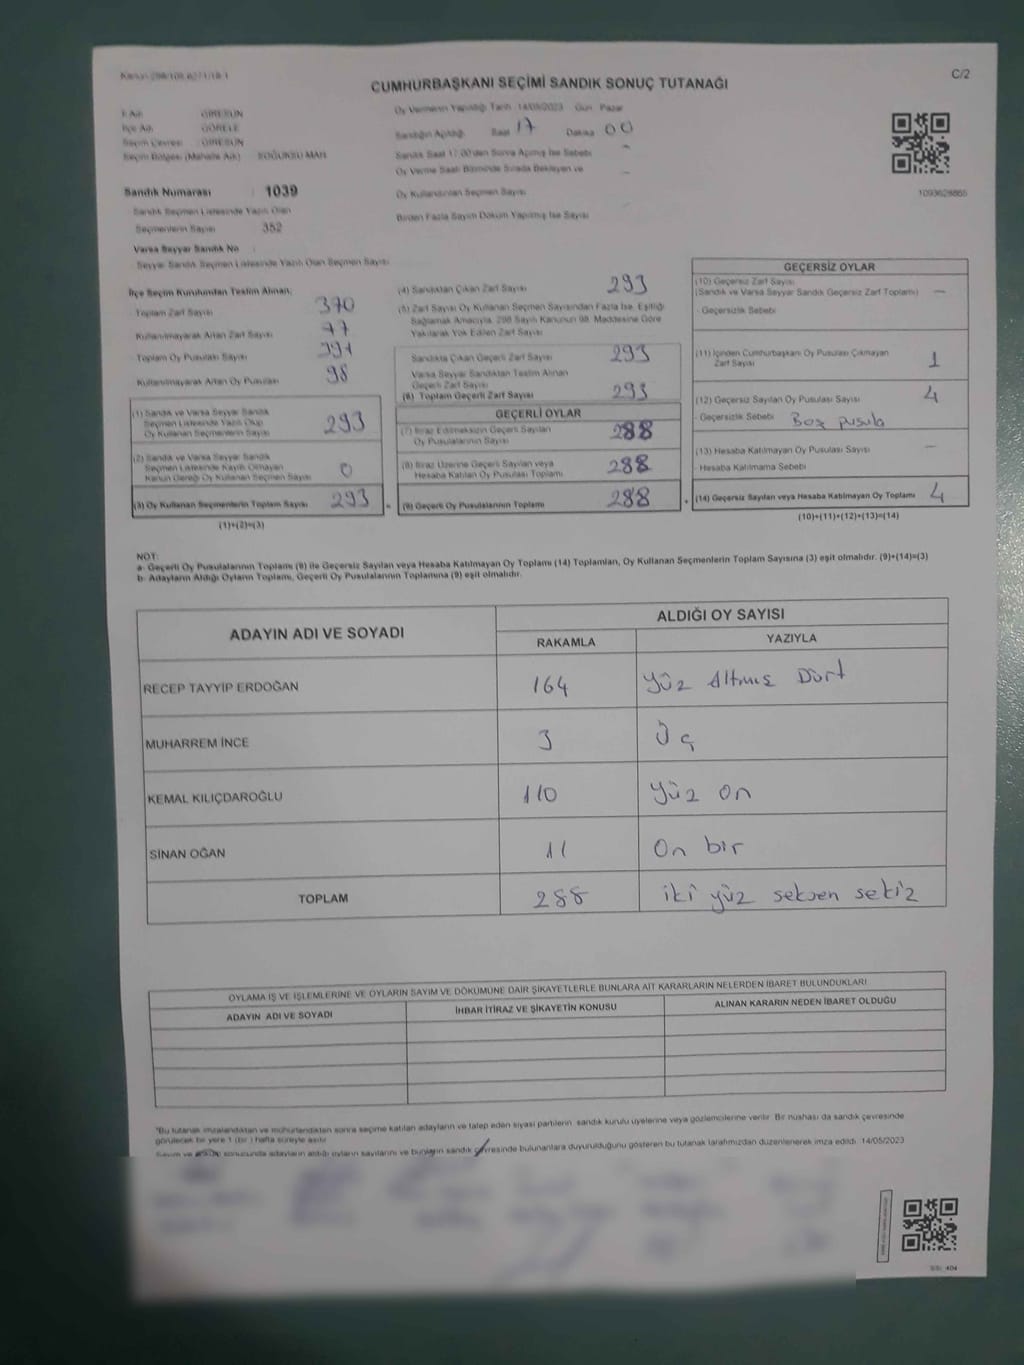 Kanun 298/108,6271/18-1
C/2
CUMHURBAŞKANI SEÇİMİ SANDIK SONUÇ TUTANAĞI
İl Adı : GİRESUN
İlçe Adı : GÖRELE
Seçim Çevresi : GİRESUN
Seçim Bölgesi (Mahalle Adı) : SOĞUKSU MAH.
Oy Vermenin Yapıldığı Tarih 14/05/2023 Gün Pazar
Sandığın Açıldığı Saat 17 Dakika 00
Sandık Saat 17:00'den Sonra Açılmış İse Sebebi -
Oy Verme Saati Bitiminde Sırada Bekleyen ve -
Oy Kullandırılan Seçmen Sayısı
Birden Fazla Sayım Döküm Yapılmış İse Sayısı
1093628865
Sandık Numarası 1039
Sandık Seçmen Listesinde Yazılı Olan
Seçmenlerin Sayısı 352
Varsa Seyyar Sandık No :
Seyyar Sandık Seçmen Listesinde Yazılı Olan Seçmen Sayısı
İlçe Seçim Kurulundan Teslim Alınan;
Toplam Zarf Sayısı 370
Kullanılmayarak Artan Zarf Sayısı 77
Toplam Oy Pusulası Sayısı 391
Kullanılmayarak Artan Oy Pusulası 98
(1) Sandık ve Varsa Seyyar Sandık
Seçmen Listesinde Yazılı Olup
Oy Kullanan Seçmenlerin Sayısı 293
(2) Sandık ve Varsa Seyyar Sandık
Seçmen Listesinde Kayıtlı Olmayan
Kanun Gereği Oy Kullanan Seçmen Sayısı 0
(3) Oy Kullanan Seçmenlerin Toplam Sayısı 293
(1)+(2)=(3)
(4) Sandıktan Çıkan Zarf Sayısı 293
(5) Zarf Sayısı Oy Kullanan Seçmen Sayısından Fazla İse, Eşitliği
Sağlamak Amacıyla, 298 Sayılı Kanunun 98. Maddesine Göre
Yakılarak Yok Edilen Zarf Sayısı
Sandıkta Çıkan Geçerli Zarf Sayısı 293
Varsa Seyyar Sandıktan Teslim Alınan
Geçerli Zarf Sayısı
(6) Toplam Geçerli Zarf Sayısı 293
GEÇERLİ OYLAR
(7) İtiraz Edilmeksizin Geçerli Sayılan
Oy Pusulalarının Sayısı 288
(8) İtiraz Üzerine Geçerli Sayılan veya
Hesaba Katılan Oy Pusulası Toplamı 288
(9) Geçerli Oy Pusulalarının Toplamı 288
GEÇERSİZ OYLAR
(10) Geçersiz Zarf Sayısı
(Sandık ve Varsa Seyyar Sandık Geçersiz Zarf Toplamı) -
- Geçersizlik Sebebi
(11) İçinden Cumhurbaşkanı Oy Pusulası Çıkmayan
Zarf Sayısı 1
(12) Geçersiz Sayılan Oy Pusulası Sayısı 4
- Geçersizlik Sebebi Boş pusula
(13) Hesaba Katılmayan Oy Pusulası Sayısı -
- Hesaba Katılmama Sebebi
(14) Geçersiz Sayılan veya Hesaba Katılmayan Oy Toplamı 4
(10)+(11)+(12)+(13)=(14)
NOT:
a- Geçerli Oy Pusulalarının Toplamı (9) ile Geçersiz Sayılan veya Hesaba Katılmayan Oy Toplamı (14) Toplamları, Oy Kullanan Seçmenlerin Toplam Sayısına (3) eşit olmalıdır. (9)+(14)=(3)
b- Adayların Aldığı Oyların Toplamı, Geçerli Oy Pusulalarının Toplamına (9) eşit olmalıdır.
ADAYIN ADI VE SOYADI
ALDIĞI OY SAYISI
RAKAMLA YAZIYLA
RECEP TAYYİP ERDOĞAN 164 Yüz Altmış Dört
MUHARREM İNCE 3 Üç
KEMAL KILIÇDAROĞLU 110 Yüz on
SİNAN OĞAN 11 On bir
TOPLAM 288 iki yüz seksen sekiz
OYLAMA İŞ VE İŞLEMLERİNE VE OYLARIN SAYIM VE DÖKÜMÜNE DAİR ŞİKAYETLERLE BUNLARA AİT KARARLARIN NELERDEN İBARET BULUNDUKLARI
ADAYIN ADI VE SOYADI İHBAR İTİRAZ VE ŞİKAYETİN KONUSU ALINAN KARARIN NEDEN İBARET OLDUĞU
*Bu tutanak imzalandıktan ve mühürlendikten sonra seçime katılan adayların ve talep eden siyasi partilerin sandık kurulu üyelerine veya gözlemcilerine verilir. Bir nüshası da sandık çevresinde
görülecek bir yere 1 (bir) hafta süreyle asılır.
Sayım ve döküm sonucunda adayların aldığı oyların sayılarını ve bunların sandık çevresinde bulunanlara duyurulduğunu gösteren bu tutanak tarafımızdan düzenlenerek imza edildi. 14/05/2023
404